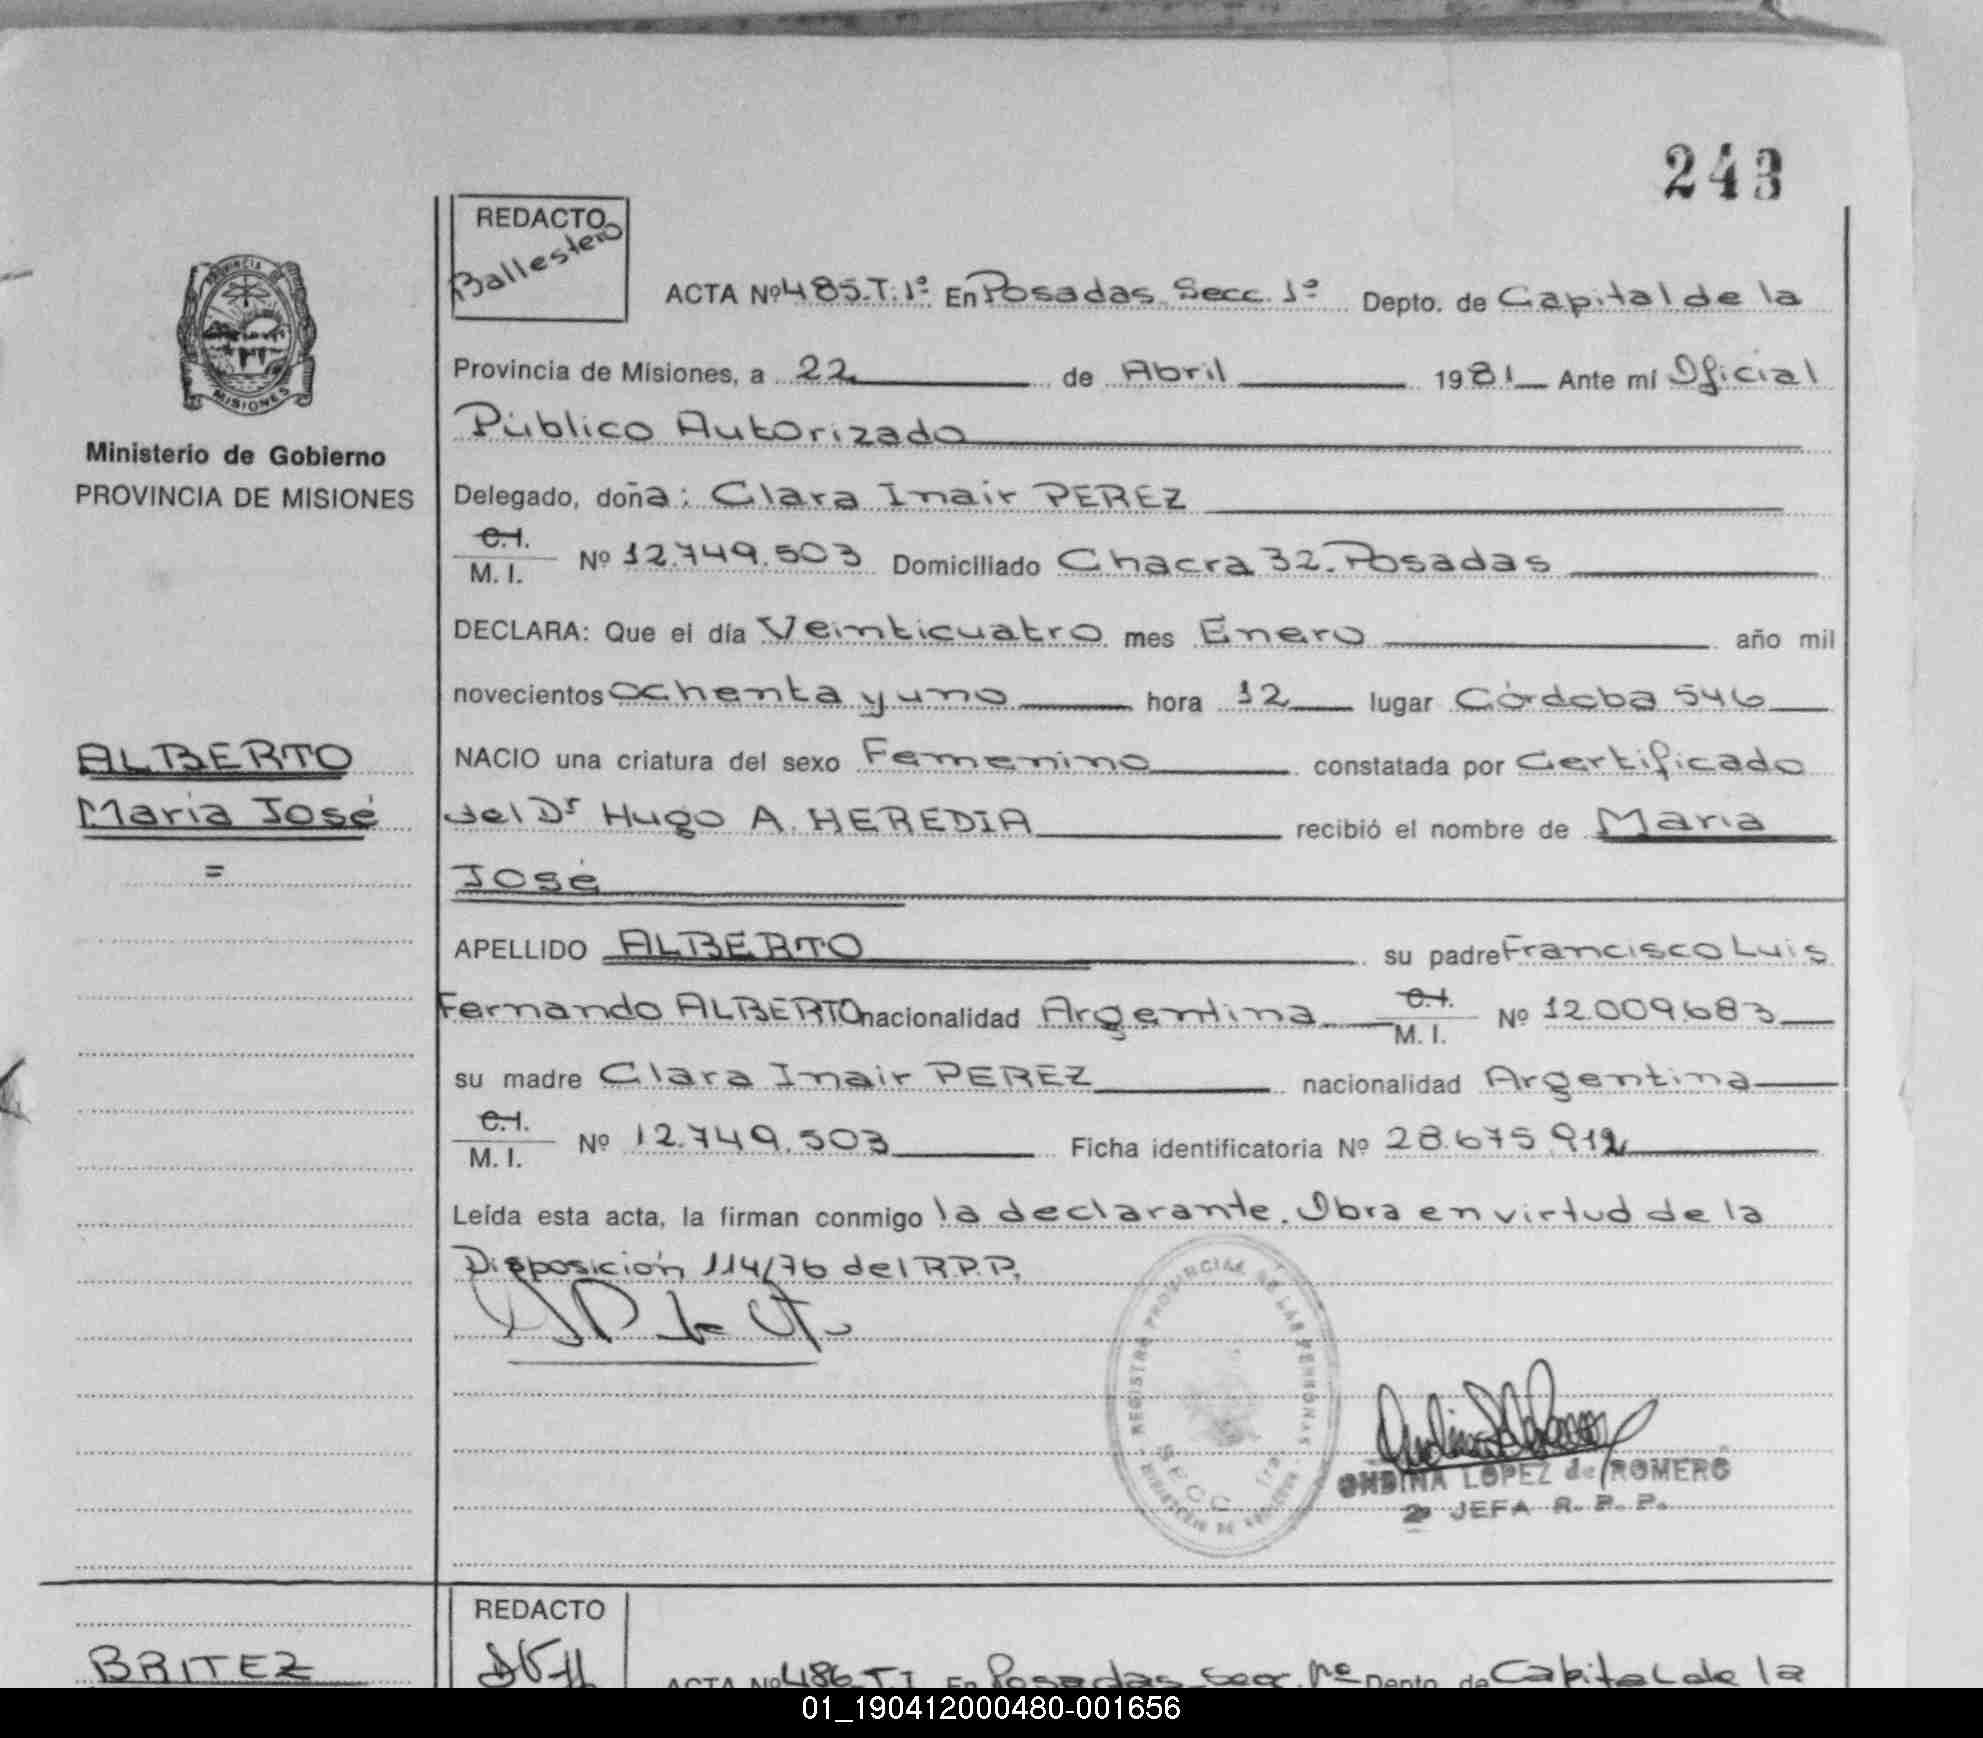 243
REDACTO
Ballestero
ACTA Nº 485.T.1º En Posadas Secc. 1º Depto. de Capital de la
PROVINCIA DE
MISIONES
Provincia de Misiones, a 22 de Abril 1981 Ante mí Oficial
Público Autorizado
Ministerio de Gobierno
PROVINCIA DE MISIONES
Delegado, doña: Clara Inair PEREZ
C.I.
M. I. Nº 12.749.503 Domiciliado Chacra 32. Posadas
DECLARA: Que el día Veinticuatro mes Enero año mil
novecientos ochenta y uno hora 12 lugar Córdoba 546
ALBERTO
María José
=
NACIO una criatura del sexo Femenino constatada por Certificado
del Dr Hugo A. HEREDIA recibió el nombre de María
José
APELLIDO ALBERTO su padre Francisco Luis
Fernando ALBERTO nacionalidad Argentina C.I. M. I. Nº 12.009.683
su madre Clara Inair PEREZ nacionalidad Argentina
C.I.
M. I. Nº 12.749.503 Ficha identificatoria Nº 28.675.912
Leída esta acta, la firman conmigo la declarante. Obra en virtud de la
Disposición 114/76 del R.P.P.
REGISTRO PROVINCIAL DE LAS PERSONAS
SECC 1ra
ONDINA LOPEZ de ROMERO
2ª JEFA R. P. P.
REDACTO
BRITEZ
ACTA Nº 486 T I En Posadas Secc. 1ra Depto. de Capital de la
01_190412000480-001656